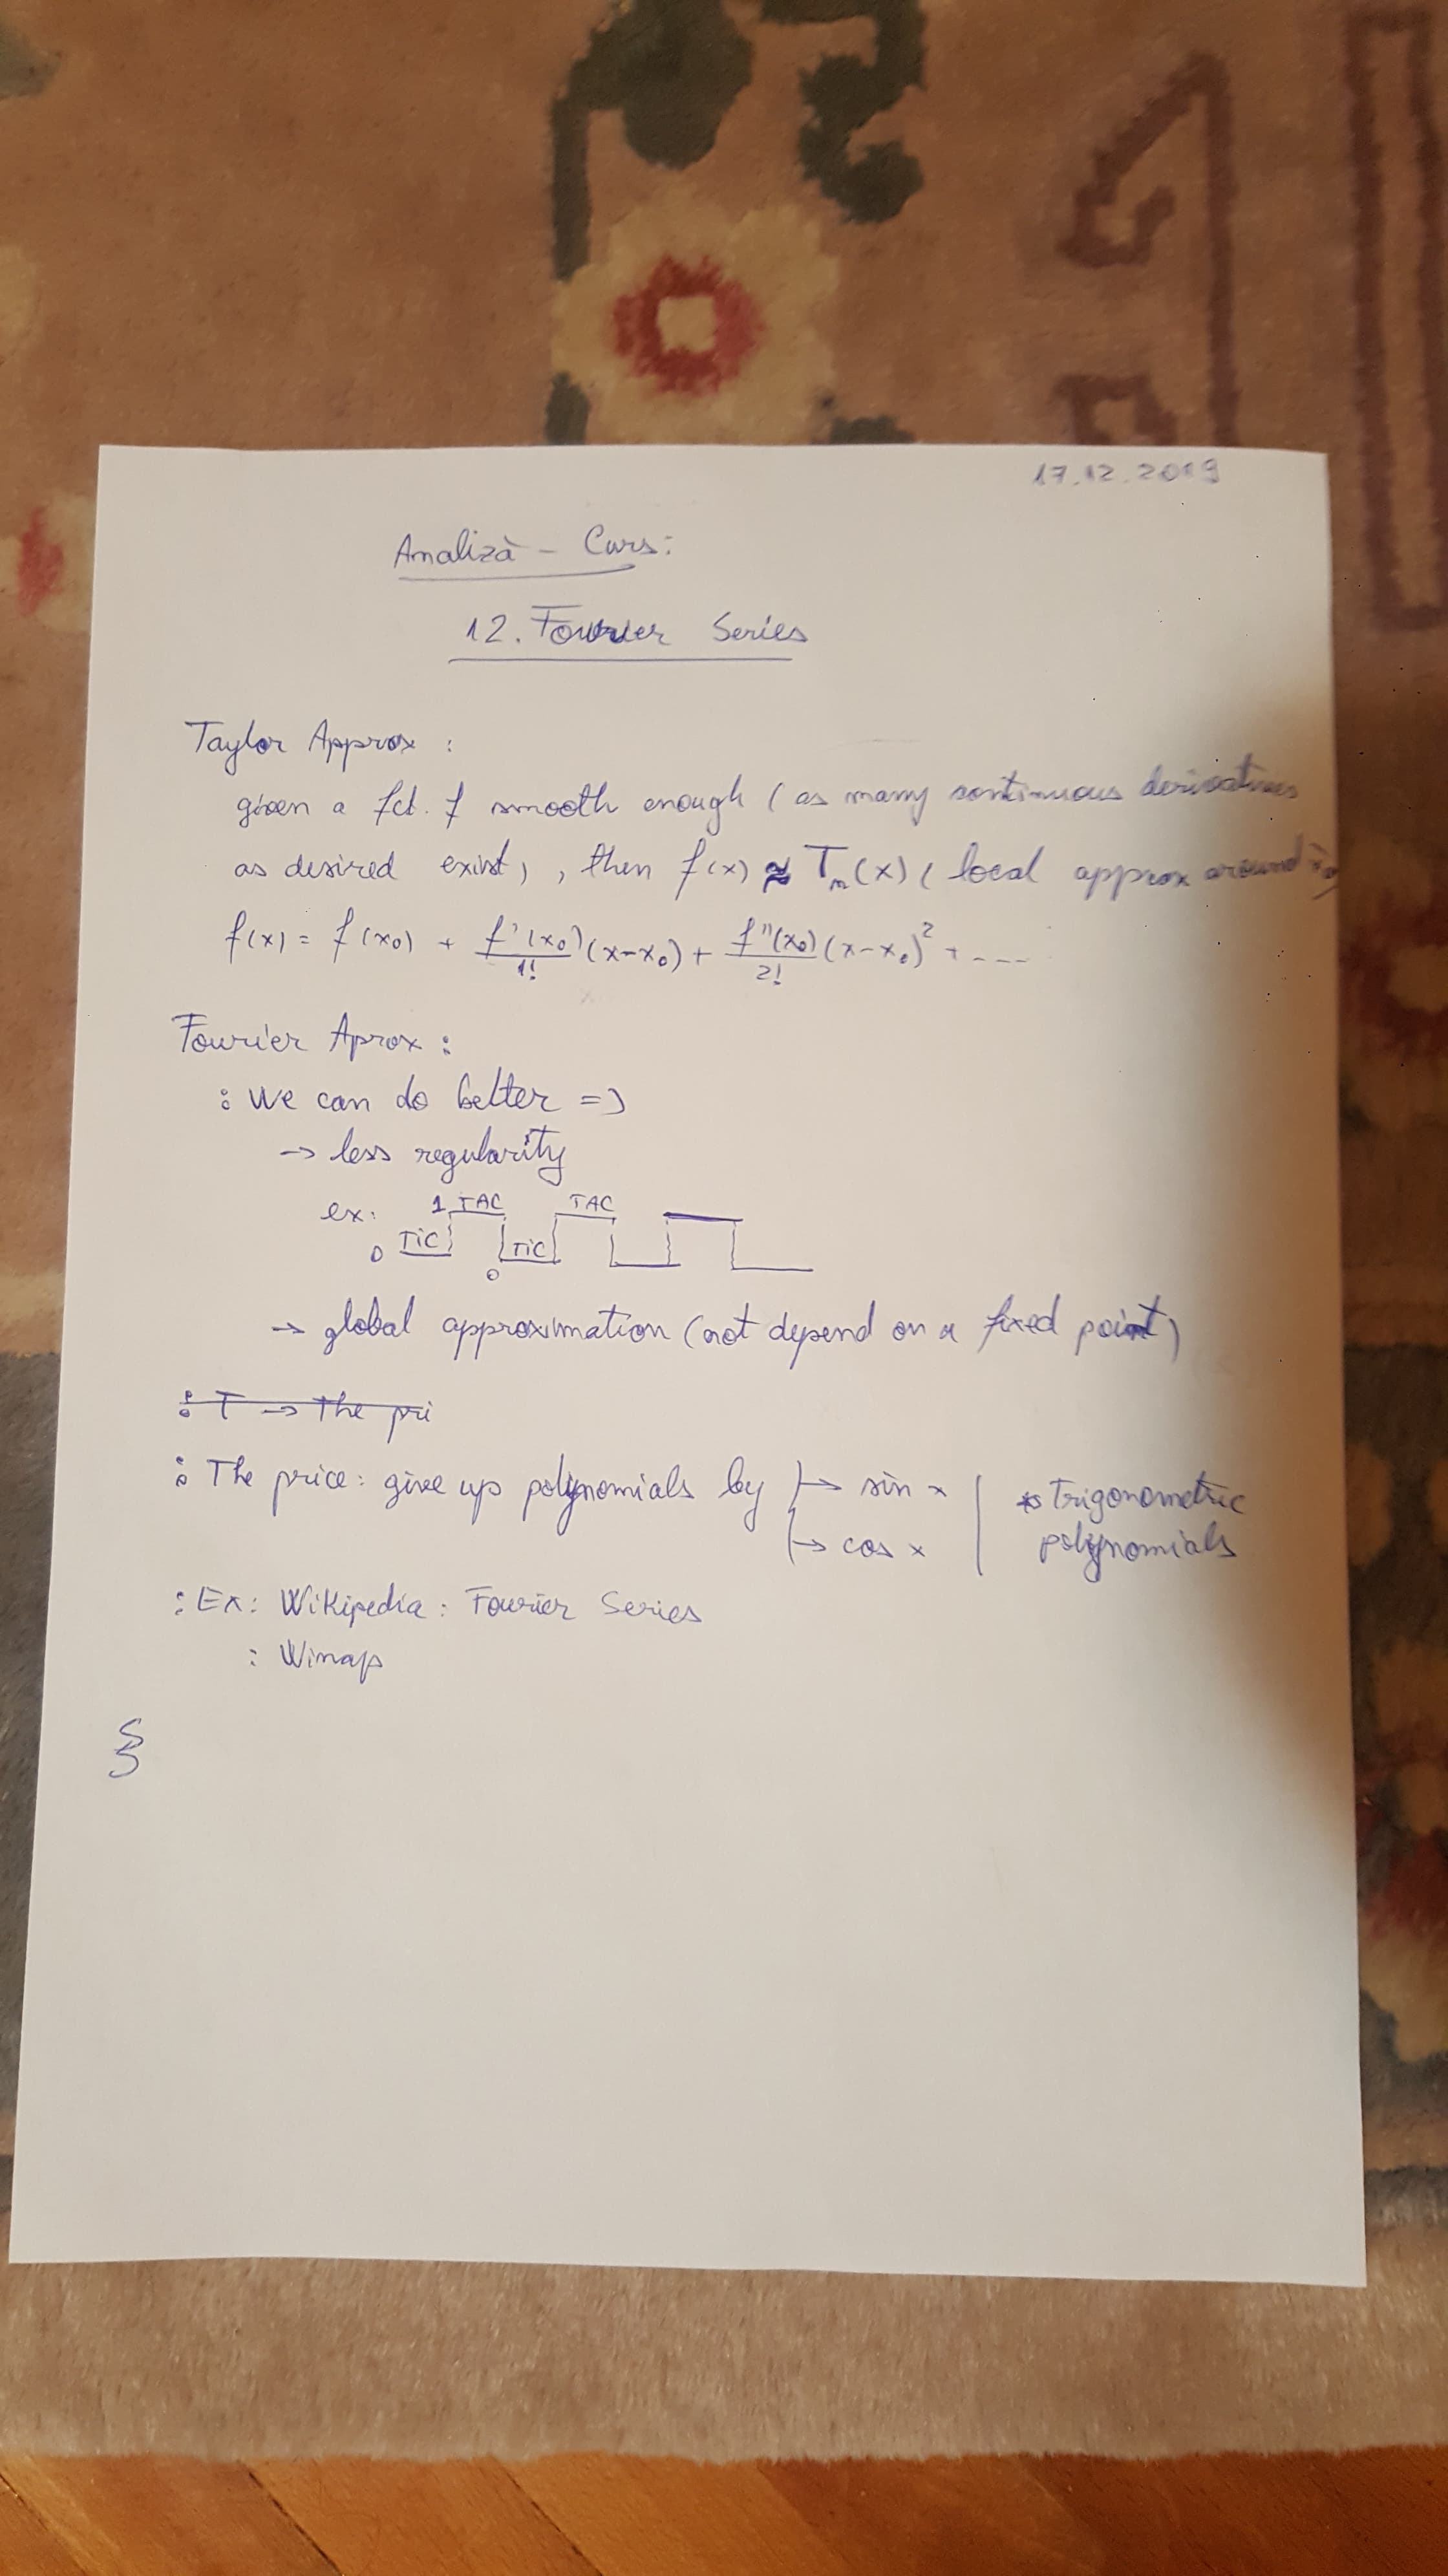 17.12.2019
Analiză - Curs:
12. Fourier Series
Taylor Approx :
given a fct. f smooth enough (as many continuous derivatives
as desired exist), then f(x) ≈ Tn(x) (local approx around x0)
f(x) = f(x0) + f'(x0)/1! (x-x0) + f''(x0)/2! (x-x0)² + ----
Fourier Aprox :
: We can do better =>
→ less regularity
ex: 0 TIC 1 TAC 0 TIC TAC
→ global approximation (not depend on a fixed point)
: T → The pri
: The price: give up polynomials by → sin x | * Trigonometric
→ cos x | polynomials
: Ex: Wikipedia: Fourier Series
: Winap